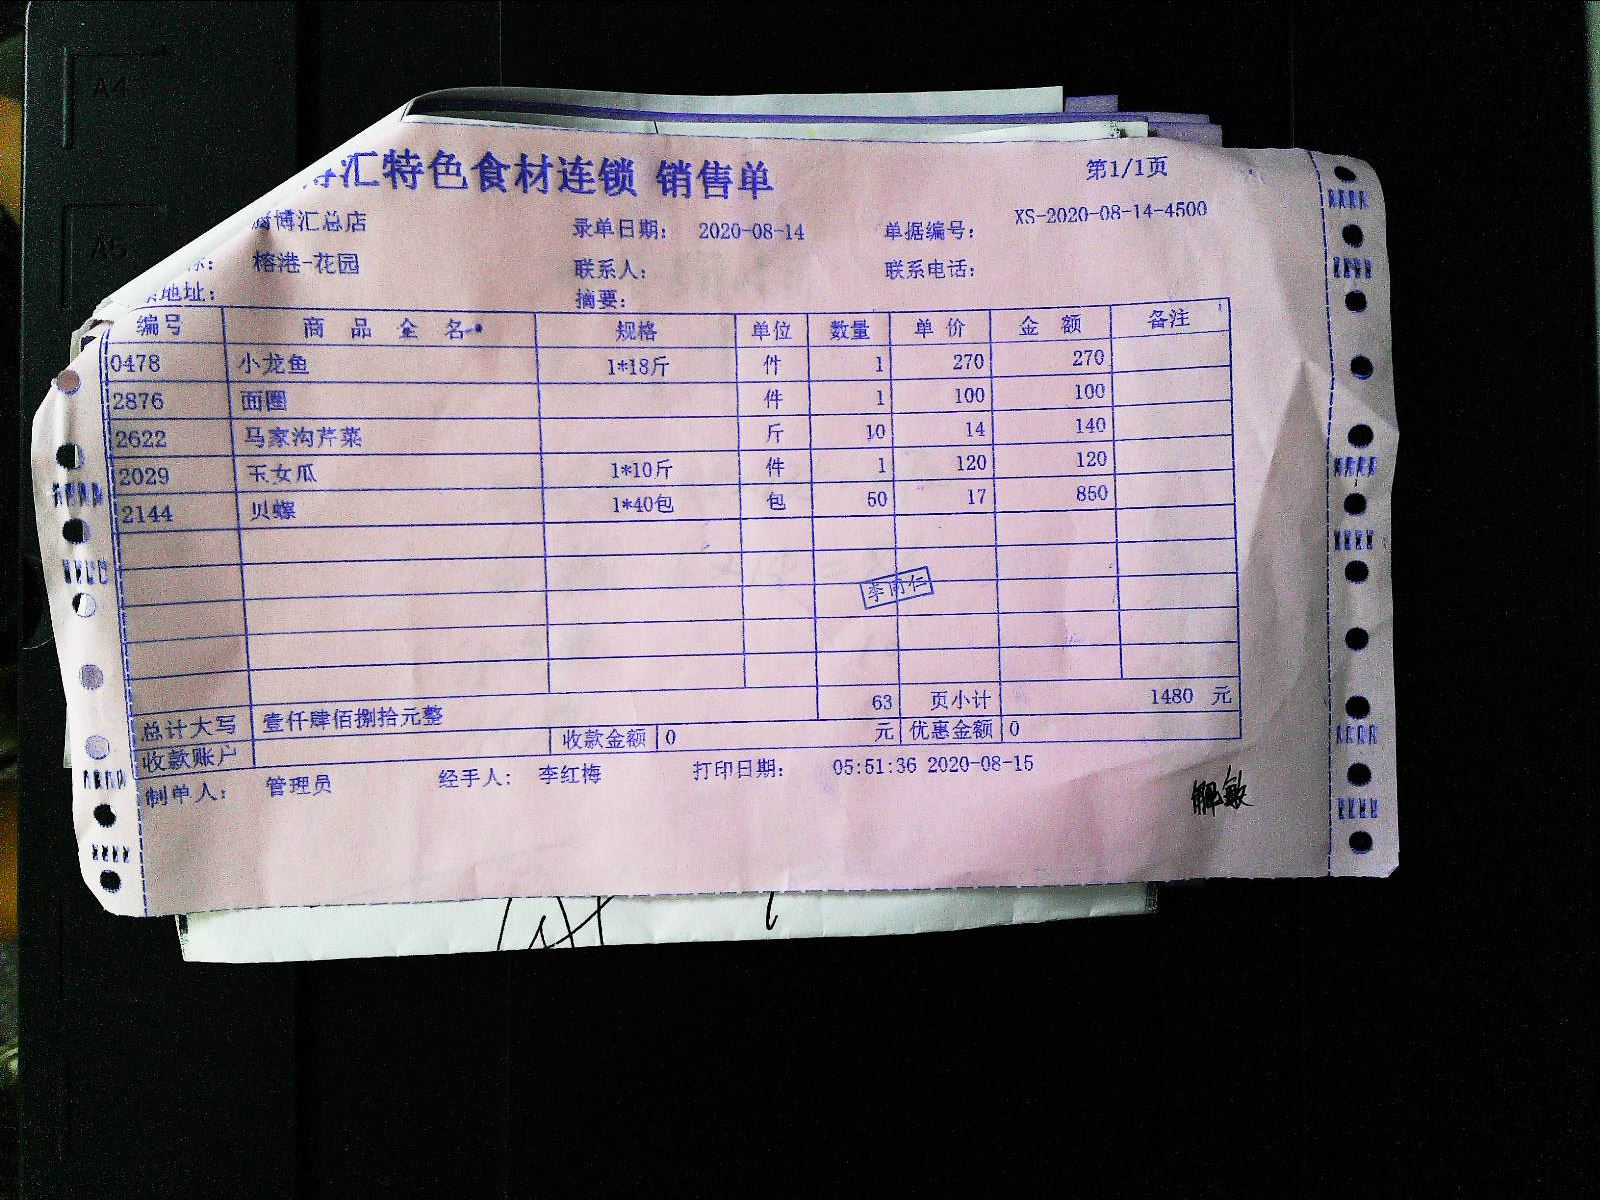 博汇特色食材连锁 销售单 第1/1页
博汇总店 录单日期: 2020-08-14 单据编号: XS-2020-08-14-4500
榕港-花园 联系人: 联系电话:
地址: 摘要:
编号 商品全名 规格 单位 数量 单价 金额 备注
0478 小龙鱼 1*18斤 件 1 270 270
2876 面圈 件 1 100 100
2622 马家沟芹菜 斤 10 14 140
2029 玉女瓜 1*10斤 件 1 120 120
2144 贝螺 1*40包 包 50 17 850
总计大写 壹仟肆佰捌拾元整 63 页小计 1480 元
收款账户 收款金额 0 元 优惠金额 0
制单人: 管理员 经手人: 李红梅 打印日期: 05:51:36 2020-08-15
A4
A5